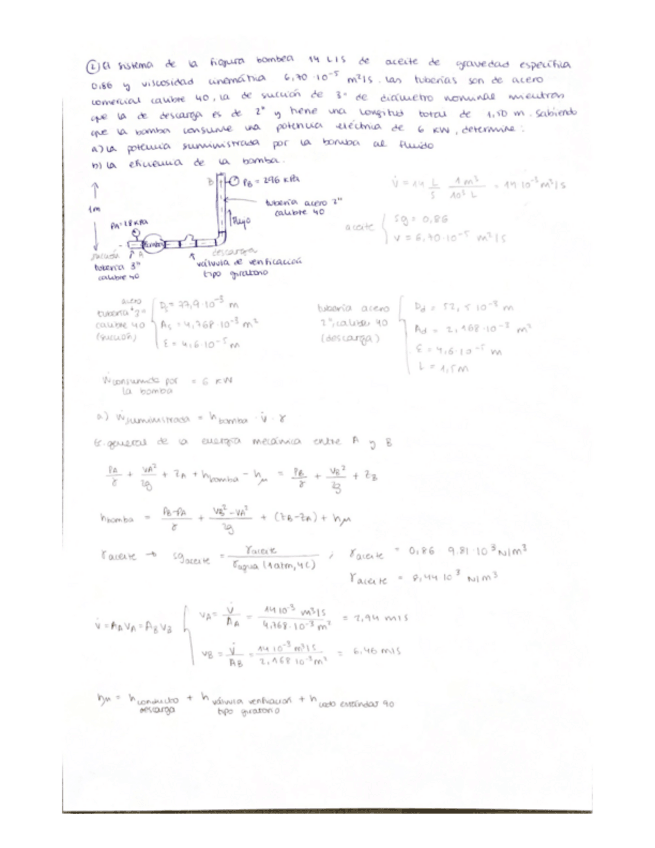 ② El sistema de la figura bombea 14 L/s de aceite de gravedad específica
0,86 y viscosidad cinemática 6,70·10⁻⁵ m²/s. Las tuberías son de acero
comercial calibre 40, la de succión de 3" de diámetro nominal mientras
que la de descarga es de 2" y tiene una longitud total de 1,50 m. Sabiendo
que la bomba consume una potencia eléctrica de 6 kW, determine:
a) la potencia suministrada por la bomba al fluido
b) la eficiencia de la bomba.
B PB = 296 kPa
V̇ = 14 L/s · 1m³/10³ L = 14·10⁻³ m³/s
tubería acero 2"
calibre 40
1m
flujo
PA = 18 kPa
Bomba
aceite { sg = 0,86
ν = 6,70·10⁻⁵ m²/s
succión A
descarga
tubería 3"
calibre 40
válvula de verificación
tipo giratorio
acero
tubería 3"
calibre 40
(succión)
Ds = 77,9·10⁻³ m
As = 4,768·10⁻³ m²
ε = 4,6·10⁻⁵ m
tubería acero
2", calibre 40
(descarga)
Dd = 52,5·10⁻³ m
Ad = 2,168·10⁻³ m²
ε = 4,6·10⁻⁵ m
L = 1,5m
Ẇconsumida por la bomba = 6 kW
a) Ẇsuministrada = hbomba · V̇ · γ
Ec. general de la energía mecánica entre A y B
PA/γ + VA²/2g + ZA + hbomba - hμ = PB/γ + VB²/2g + ZB
hbomba = PB-PA/γ + VB²-VA²/2g + (ZB-ZA) + hμ
γaceite → sgaceite = γaceite/γagua (1atm, 4C) ; γaceite = 0,86 9,81·10³ N/m³
γaceite = 8,44 10³ N/m³
V̇ = AAVA = ABVB { VA = V̇/AA = 14·10⁻³ m³/s / 4,768·10⁻³ m² = 2,94 m/s
VB = V̇/AB = 14·10⁻³ m³/s / 2,168·10⁻³ m² = 6,46 m/s
hμ = hconducto descarga + hválvula verificación tipo giratorio + hcodo estándar 90